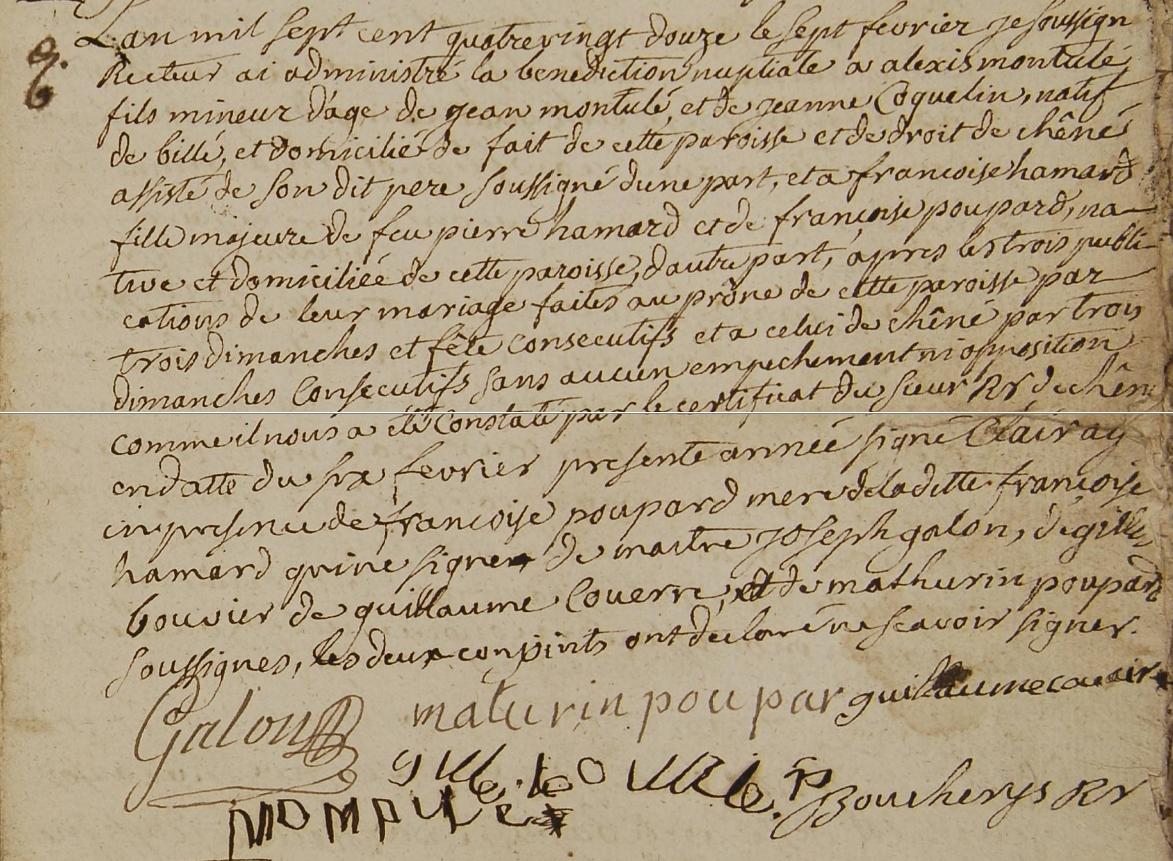 L'an mil sept cent quatrevingt douze le sept fevrier je soussign
Recteur ai administré la benediction nuptiale a alexis montulé
fils mineur d'age de jean montulé, et de jeanne Coquelin, natif
de billé, et domicilié de fait de cette paroisse et de droit de chêné
assisté de son dit pere soussigné d'une part, et a francoise hamard
fille majeure de feu pierre hamard et de françoise poupard, na-
tive et domiciliée de cette paroisse, d'autre part, apres les trois publi-
cations de leur mariage faites au prône de cette paroisse par
trois dimanches et fête consecutifs et a celui de chêné par trois
dimanches consecutifs sans aucun empechement ni opposition
comme il nous a été constaté par le certificat du sieur Rr de chêné
en datte du six fevrier presente année signé Clairay
en presence de françoise poupard mere de laditte françoise
hamard qui ne signe, de maitre joseph galon, de gilles
bouvier de guillaume Couerre, et de mathurin poupard
soussignes, les deux conjoints ont declaré ne scavoir signer.
Galon maturin poupar guillaume
gille bouvie
montule Boucherys Rr